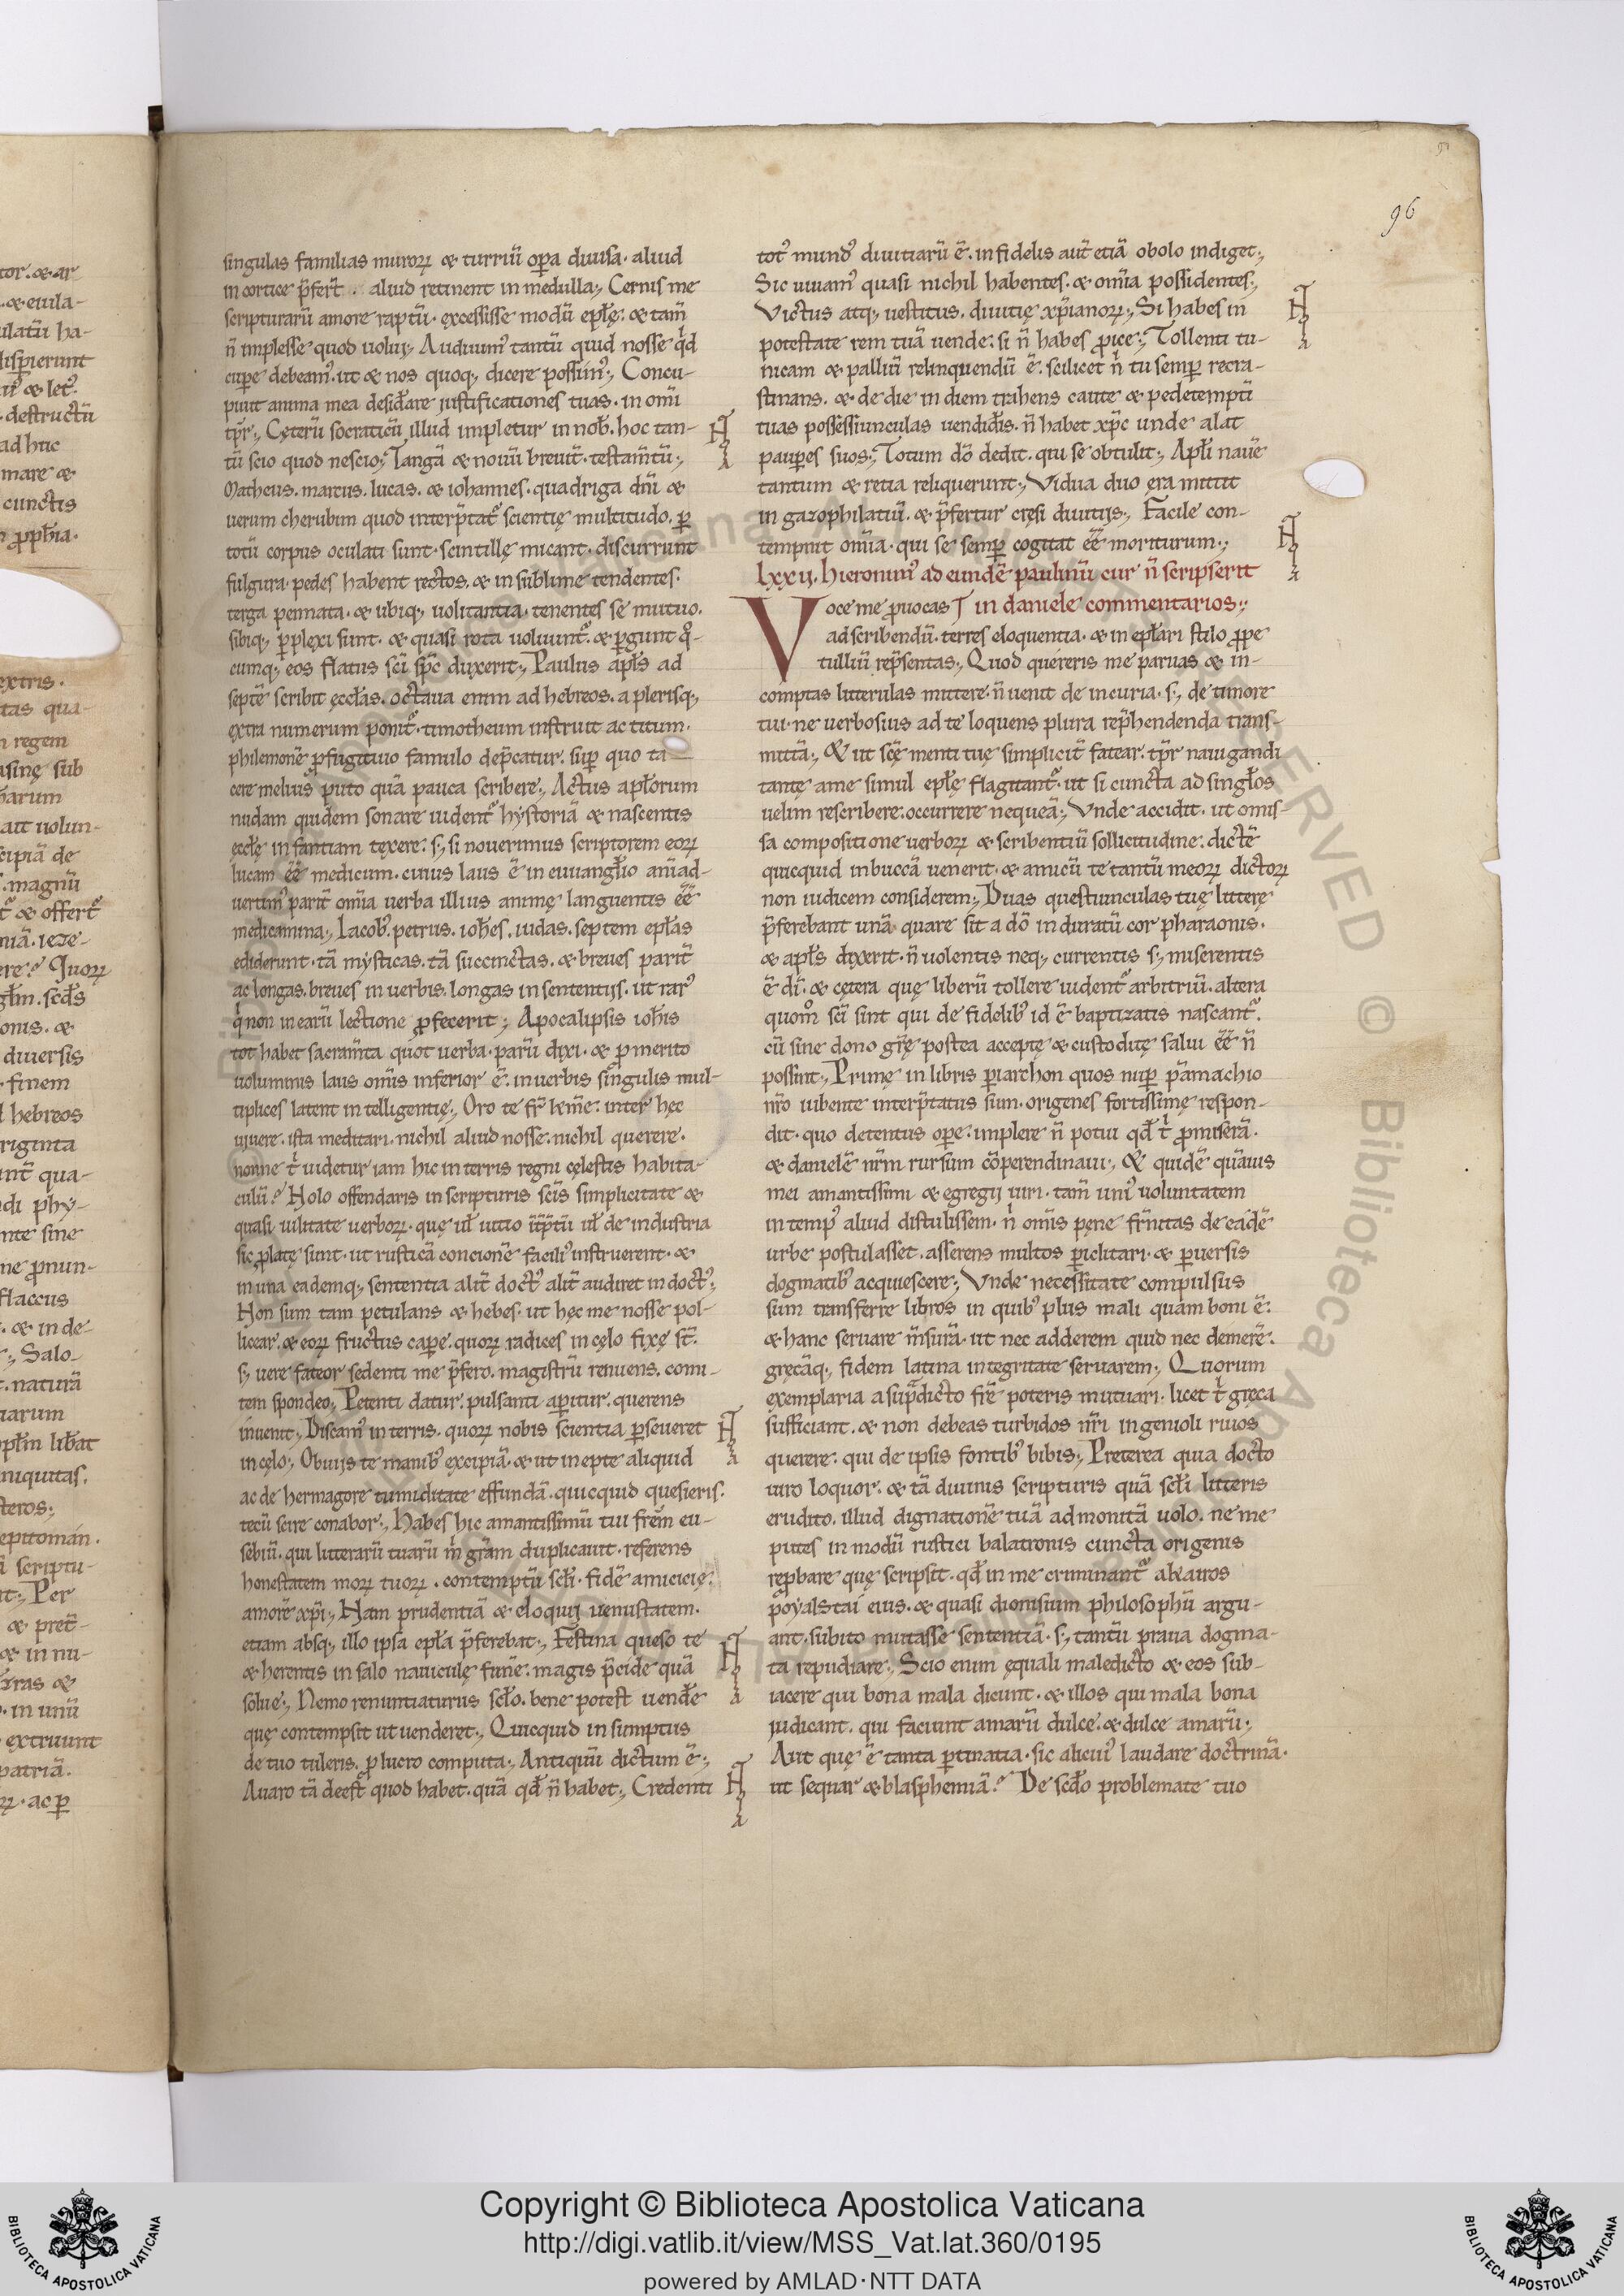 96
singulas familias muroꝝ & turriū oꝑa diuisa. aliud
in cortice p̄fert̄. aliud retinent in medulla; Cernis me
scripturarū amore raptū. excessisse modū epłę. & tam̄
n̄ implesse quod uolui; Audiuim᾽ tantū quid nosse qͥd
cuꝑe debeam᾽. ut & nos quoq; dicere possim᾽; Concu-
piuit anima mea desiďare iustificationes tuas. in om̄i
tp̄r; Cęterū socraticū illud impletur in nob̄. hoc tan-
tū scio quod nescio; Tangā & nouū breuit̄. testam̄tū;
Matheus. marcus. lucas. & iohannes. quadriga dn̄i &
uerum cherubim quod interp̄tat᷑ scientię multitudo. ꝑ
totū corpus oculati sunt. scintillę micant. discurrunt
fulgura. pedes habent rectos. & in sublime tendentes.
terga pennata. & ubiq; uolitantia. tenentes se mutuo.
sibiq; ꝑplexi sunt. & quasi rota uoluunt᷑. & ꝑgunt qͦ-
cumq; eos flatus sc̄i sp̄c duxerit; Paulus apłs ad
septē scribit ęccłas. octaua enim ad hebreos. a plerisq;
extra numerum ponit᷑. timotheum instruit ac titum.
philemonē ꝓfugitiuo famulo dep̄catur. suꝑ quo ta
cere melius puto quā pauca scribere; Actus apłorum
nudam quidem sonare uident᷑ hystoriā & nascentis
ęccłę infantiam texere: s; si nouerimus scriptorem eoꝝ
lucam ēē medicum. cuius laus ē in euuangłio anīad-
uertim᾽ parit̄ om̄ia uerba illius animę languentis ēē
medicamina; Iacob᾽. petrus. ioħes. iudas. septem epłas
ediderunt. tā mysticas. tā succinctas. & breues parit̄
ac longas. breues in uerbis. longas in sententiis. ut rar᾽
qͥ non in earū lectione ꝓfecerit; Apocalipsis ioħis
tot habet sacram̄ta quot uerba. parū dixi. & ꝓ merito
uoluminis laus om̄is inferior ē. in uerbis singulis mul-
tiplices latent intelligentię; Oro te fr̄ km̄e: inter hęc
uiuere. ista meditari. nichil aliud nosse. nichil querere.
nonne tͥ uidetur iam hic in terris regni cęlestis habita-
culū? Nolo offendaris in scripturis sc̄is simplicitate &
quasi uilitate uerboꝝ. quę ut uitio īṗ̄tū uł de industria
sic ꝓlatę sunt. ut rusticā concionē facili᾽ instruerent. &
in una eademq; sententia alit̄ doct᾽ alit̄ audiret indoct᾽;
Non sum tam petulans & hebes. ut hęc me nosse pol-
licear. & eoꝝ fructus caꝑe. quoꝝ radices in cęlo fixę st̄.
s; uere fateor sedenti me p̄fero. magistrū renuens. comi-
tem spondeo; Petenti datur. pulsanti aꝑitur. querens
inuenit; Discam᾽ in terris. quoꝝ nobis scientia ꝑseueret
in cęlo; Obuiis te manib᾽ excipiā. & ut inepte aliquid
ac de hermagore tumiditate effundā. quicquid quesieris.
tecū scire conabor; Habes hic amantissimū tui frēm eu-
sebiū. qui litterarū tuarū m̓ grām duplicauit. referens
honestatem moꝝ tuoꝝ. contemptū scłi. fidē amicicię.
amorē xp̄i; Nam prudentiā & eloquii uenustatem.
etiam absq; illo ipsa epła p̄ferebat; Festina queso te
& herentis in salo nauiculę funē: magis p̄cide quā
solue; Nemo renuntiaturus scło. bene potest uenďe
quę contempsit ut uenderet; Quicquid in sumptus
de tuo tuleris. ꝓ lucro computa; Antiquū dictum ē;
Auaro tā deest quod habet. quā qđ n̄ habet; Credenti
tot᾽ mund᾽ diuitiarū ē. infidelis aut̄ etiā obolo indiget;
Sic uiuam᾽ quasi nichil habentes. & om̄ia possidentes;
Victus atq; uestitus. diuitię xp̄ianoꝝ; Si habes in
potestate rem tuā uende: si n̄ habes ꝓice; Tollenti tu-
nicam & palliū relinquendū ē. scilicet nͥ tu semꝑ recra-
stinans. & de die in diem trahens caute & pedetemptī
tuas possessiunculas uendiďis. n̄ habet xp̄c unde alat
pauꝑes suos; Totum dō dedit. qui se obtulit; Apłi nauē
tantum & retia reliquerunt; Vidua duo ęra mittit
in gazophilatiū. & p̄fertur cręsi diuitiis; Facile con-
tempnit om̄ia. qui se semꝑ cogitat ēē moriturum;
lxxii. Hieronim᾽ ad eundē paulinū cur n̄ scripserit
in daniele commentarios;
Voce me ꝓuocas
ad scribendū. terres eloquentia. & in epłari stilo ꝓpe
tulliū rep̄sentas; Quod quereris me paruas & in-
comptas litterulas mittere. n̄ uenit de incuria. s; de timore
tui. ne uerbosius ad te loquens plura rep̄hendenda trans-
mittā; & ut scę̄ menti tuę simplicit̄ fatear. tp̄r nauigandi
tantę a me simul epłę flagitant᷑. ut si cuncta ad singłos
uelim rescribere: occurrere nequeā; Vnde accidit. ut omis-
sa compositione uerboꝝ & scribentiū sollicitudine: dictē
quicquid in buccā uenerit. & amicū te tantū meoꝝ dictoꝝ
non iudicem considerem; Duas questiunculas tuę litterę
p̄ferebant unā. quare sit a dō induratū cor pharaonis.
& apłs dixerit. n̄ uolentis neq; currentis s; miserentis
ē dī. & cętera quę liberū tollere uident᷑ arbitriū. altera
quom̊ sc̄i sint qui de fidelib᾽ id ē baptizatis nascant᷑.
cū sine dono grę̄ postea acceptę & custoditę salui ēē n̄
possint; Primę in libris ꝑiarchon quos nuꝑ pāmachio
nr̄o iubente interp̄tatus sum. origenes fortissimę respon-
dit. quo detentus oꝑe: implere n̄ potui qđ tͥ ꝓmiserā.
& danielē nr̄m rursum cōperendinaui; & quidē quāuis
mei amantissimi & egregii uiri. tam̄ uni᾽ uoluntatem
in temp᾽ aliud distulissem. nͥ om̄is pęne fr̄nitas de eadē
urbe postulasset. asserens multos ꝑiclitari. & ꝑuersis
dogmatib᾽ acquiescere; Vnde necessitate compulsus
sum transferre libros in quib᾽ plus mali quam boni ē:
& hanc seruare m̄surā. ut nec adderem quid nec demerē.
gręcāq; fidem latina integritate seruarem; Quorum
exemplaria a sup̄dicto frē poteris mutuari. licet tͥ gręca
sufficiant. & non debeas turbidos nr̄i ingenioli riuos
querere: qui de ipsis fontib᾽ bibis; Preterea quia docto
uiro loquor. & tā diuinis scripturis quā scłi litteris
erudito. illud dignationē tuā admonitā uolo. ne me
putes in modū rustici balatronis cuncta origenis
reꝓbare quę scripsit. qđ in me criminant᷑
eius. & quasi dionisium philosophū argu-
ant. subito mutasse sententiā. s; tantū praua dogma-
ta repudiare; Scio enim ęquali maledicto & eos sub-
iacere qui bona mala dicunt. & illos qui mala bona
iudicant. qui faciunt amarū dulce. & dulce amarū;
Aut quę ē tanta ꝑtinatia. sic alicui᾽ laudare doctrinā.
ut sequar & blasphemiā? De scďo problemate tuo
Copyright © Biblioteca Apostolica Vaticana
http://digi.vatlib.it/view/MSS_Vat.lat.360/0195
powered by AMLAD·NTT DATA
BIBLIOTECA APOSTOLICA VATICANA
BIBLIOTECA APOSTOLICA VATICANA